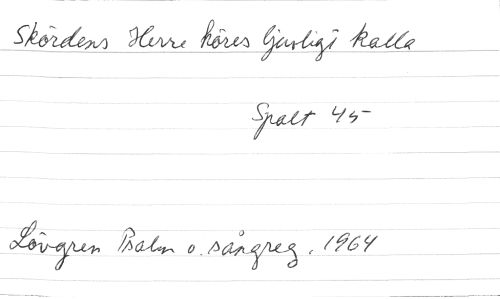 Skördens Herre höres ljuvligt kalla
Spalt 45
Lövgren Psalm o. sångreg. 1964